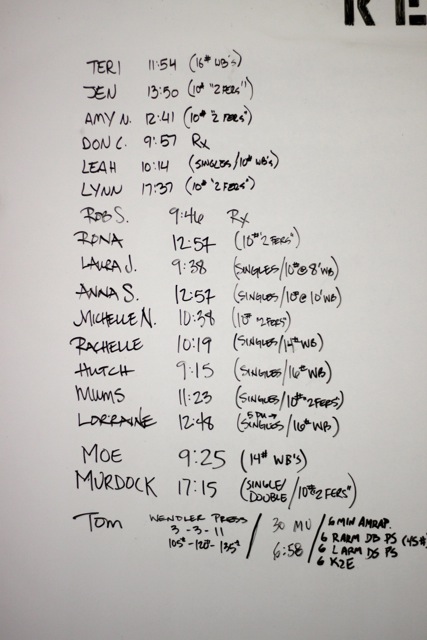 RE
TERI 11:54 (16# WB'S)
JEN 13:50 (10# "2 FERS")
AMY N. 12:41 (10# "2 FERS")
DON C. 9:57 Rx
LEAH 10:14 (SINGLES/10# WB'S)
LYNN 17:37 (10# "2 FERS")
ROB S. 9:46 Rx
RONA 12:57 (10# "2 FERS")
LAURA J. 9:38 (SINGLES/10# @ 8' WB)
ANNA S. 12:57 (SINGLES/10# @ 10' WB)
MICHELLE N. 10:38 (10# "2 FERS)
RACHELLE 10:19 (SINGLES/14# WB)
HUTCH 9:15 (SINGLES/16# WB)
MUMS 11:23 (SINGLES/10# "2 FERS")
LORRAINE 12:48 (SINGLES/16# WB)
MOE 9:25 (14# WB'S)
MURDOCK 17:15 (SINGLE/
DOUBLE/10# 2 FERS")
TOM WENDLER PRESS
3-3-11
105#-120#-135#
/ 30 MU
6:58
/ 6 MIN AMRAP.
6 R ARM DB PS (45#
6 L ARM DB PS
6 K2E